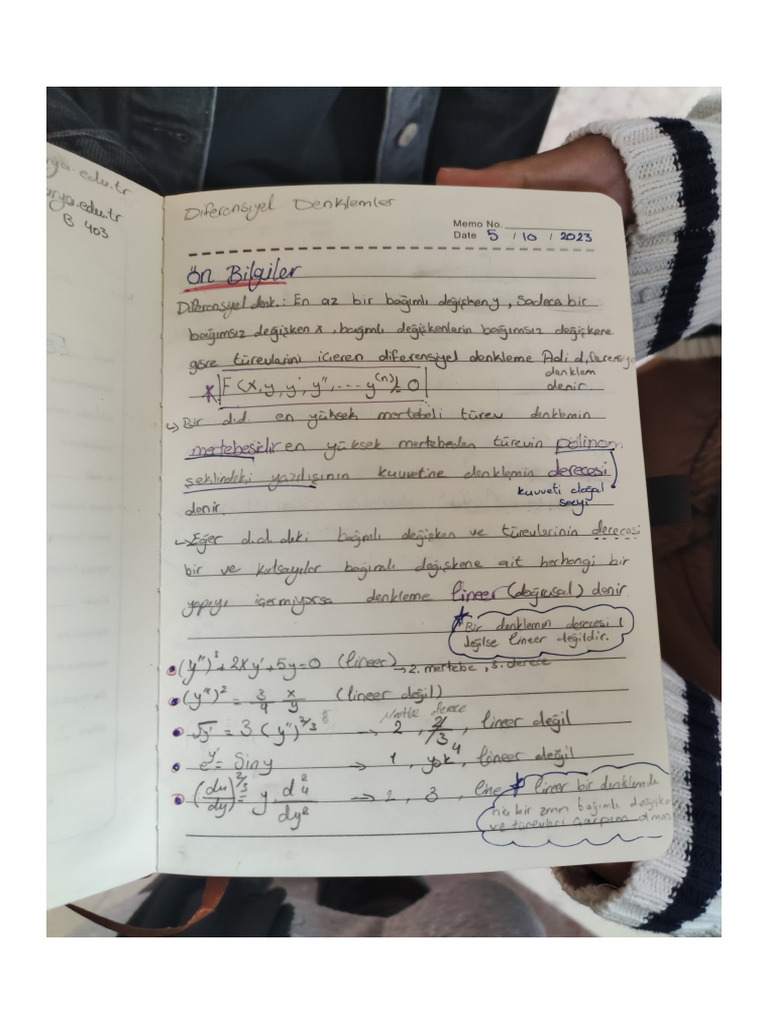 arya.edu.tr
arya.edu.tr
B 403
Diferensiyel Denklemler
Memo No.
Date 5 / 10 / 2023
Ön Bilgiler
Diferensiyel denk.: En az bir bağımlı değişken y, Sadece bir
bağımsız değişken x, bağımlı değişkenlerin bağımsız değişkene
göre türevlerini içeren diferensiyel denkleme Adi diferensiye
denklem
denir.
* F(x, y, y', y'', ---- y⁽ⁿ⁾) = 0
↳ Bir d.d. en yüksek mertebeli türev denklemin
mertebesidir en yüksek mertebeden türevin polinom
şeklindeki yazılışının kuvvetine denklemin derecesi
kuvveti doğal
sayı
denir.
↳ Eğer d.d. deki bağımlı değişken ve türevlerinin derecesi
bir ve katsayılar bağımlı değişkene ait herhangi bir
yapıyı içermiyorsa denkleme lineer (doğrusal) denir.
* Bir denklemin derecesi 1
değilse lineer değildir.
• (y'')³ + 2xy' + 5y = 0 (lineer) → 2. mertebe, 3. derece
• (y'')² = 3/4 x/y (lineer değil)
mertebe derece
• √y' = 3.(y'')^2/3 → 2, /3, lineer değil
4
• e^y' = Siny → 1, yok, lineer değil
• (du/dy)^2/3 = y. d²u/dy² → 2, 3, line
* lineer bir denklemde
hiç bir zmn bağımlı değişke
ve türevleri çarpım dmm